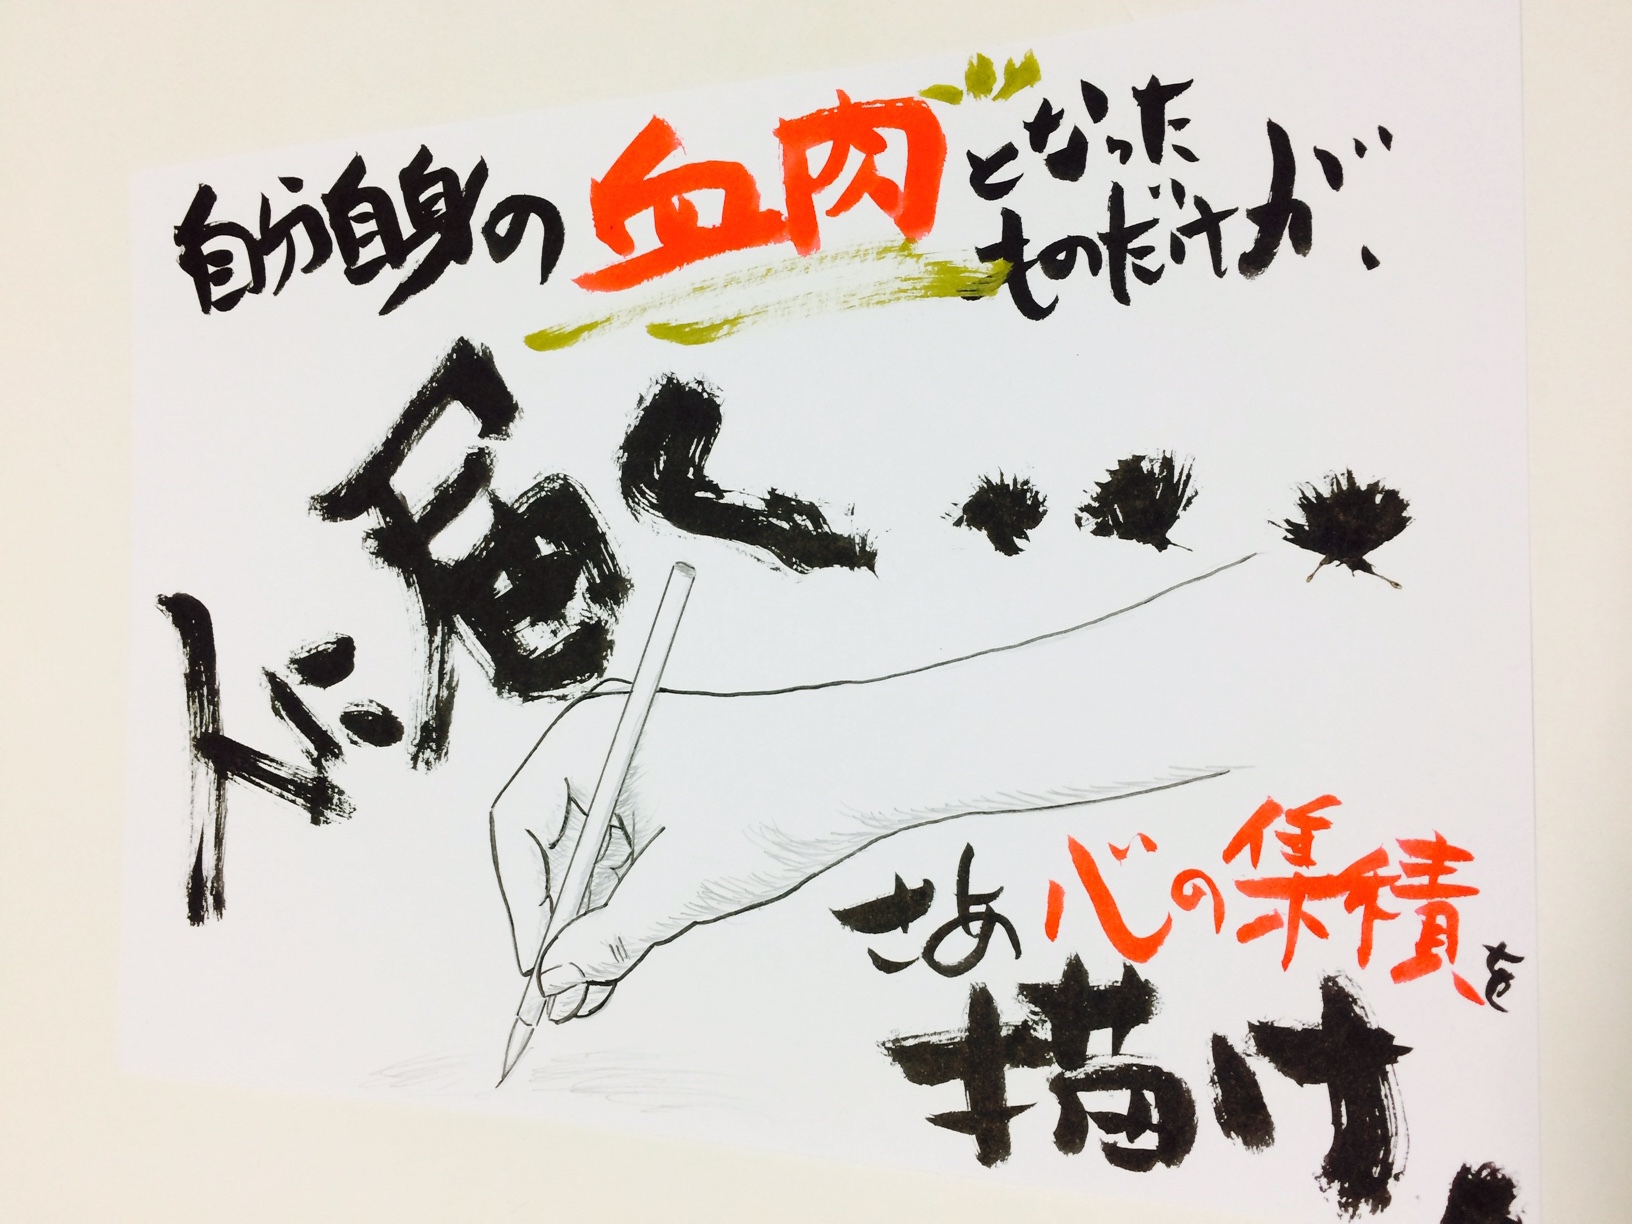 自分自身の血肉となった
ものだけが、
人に届く・・・
さあ心の集積を
描け